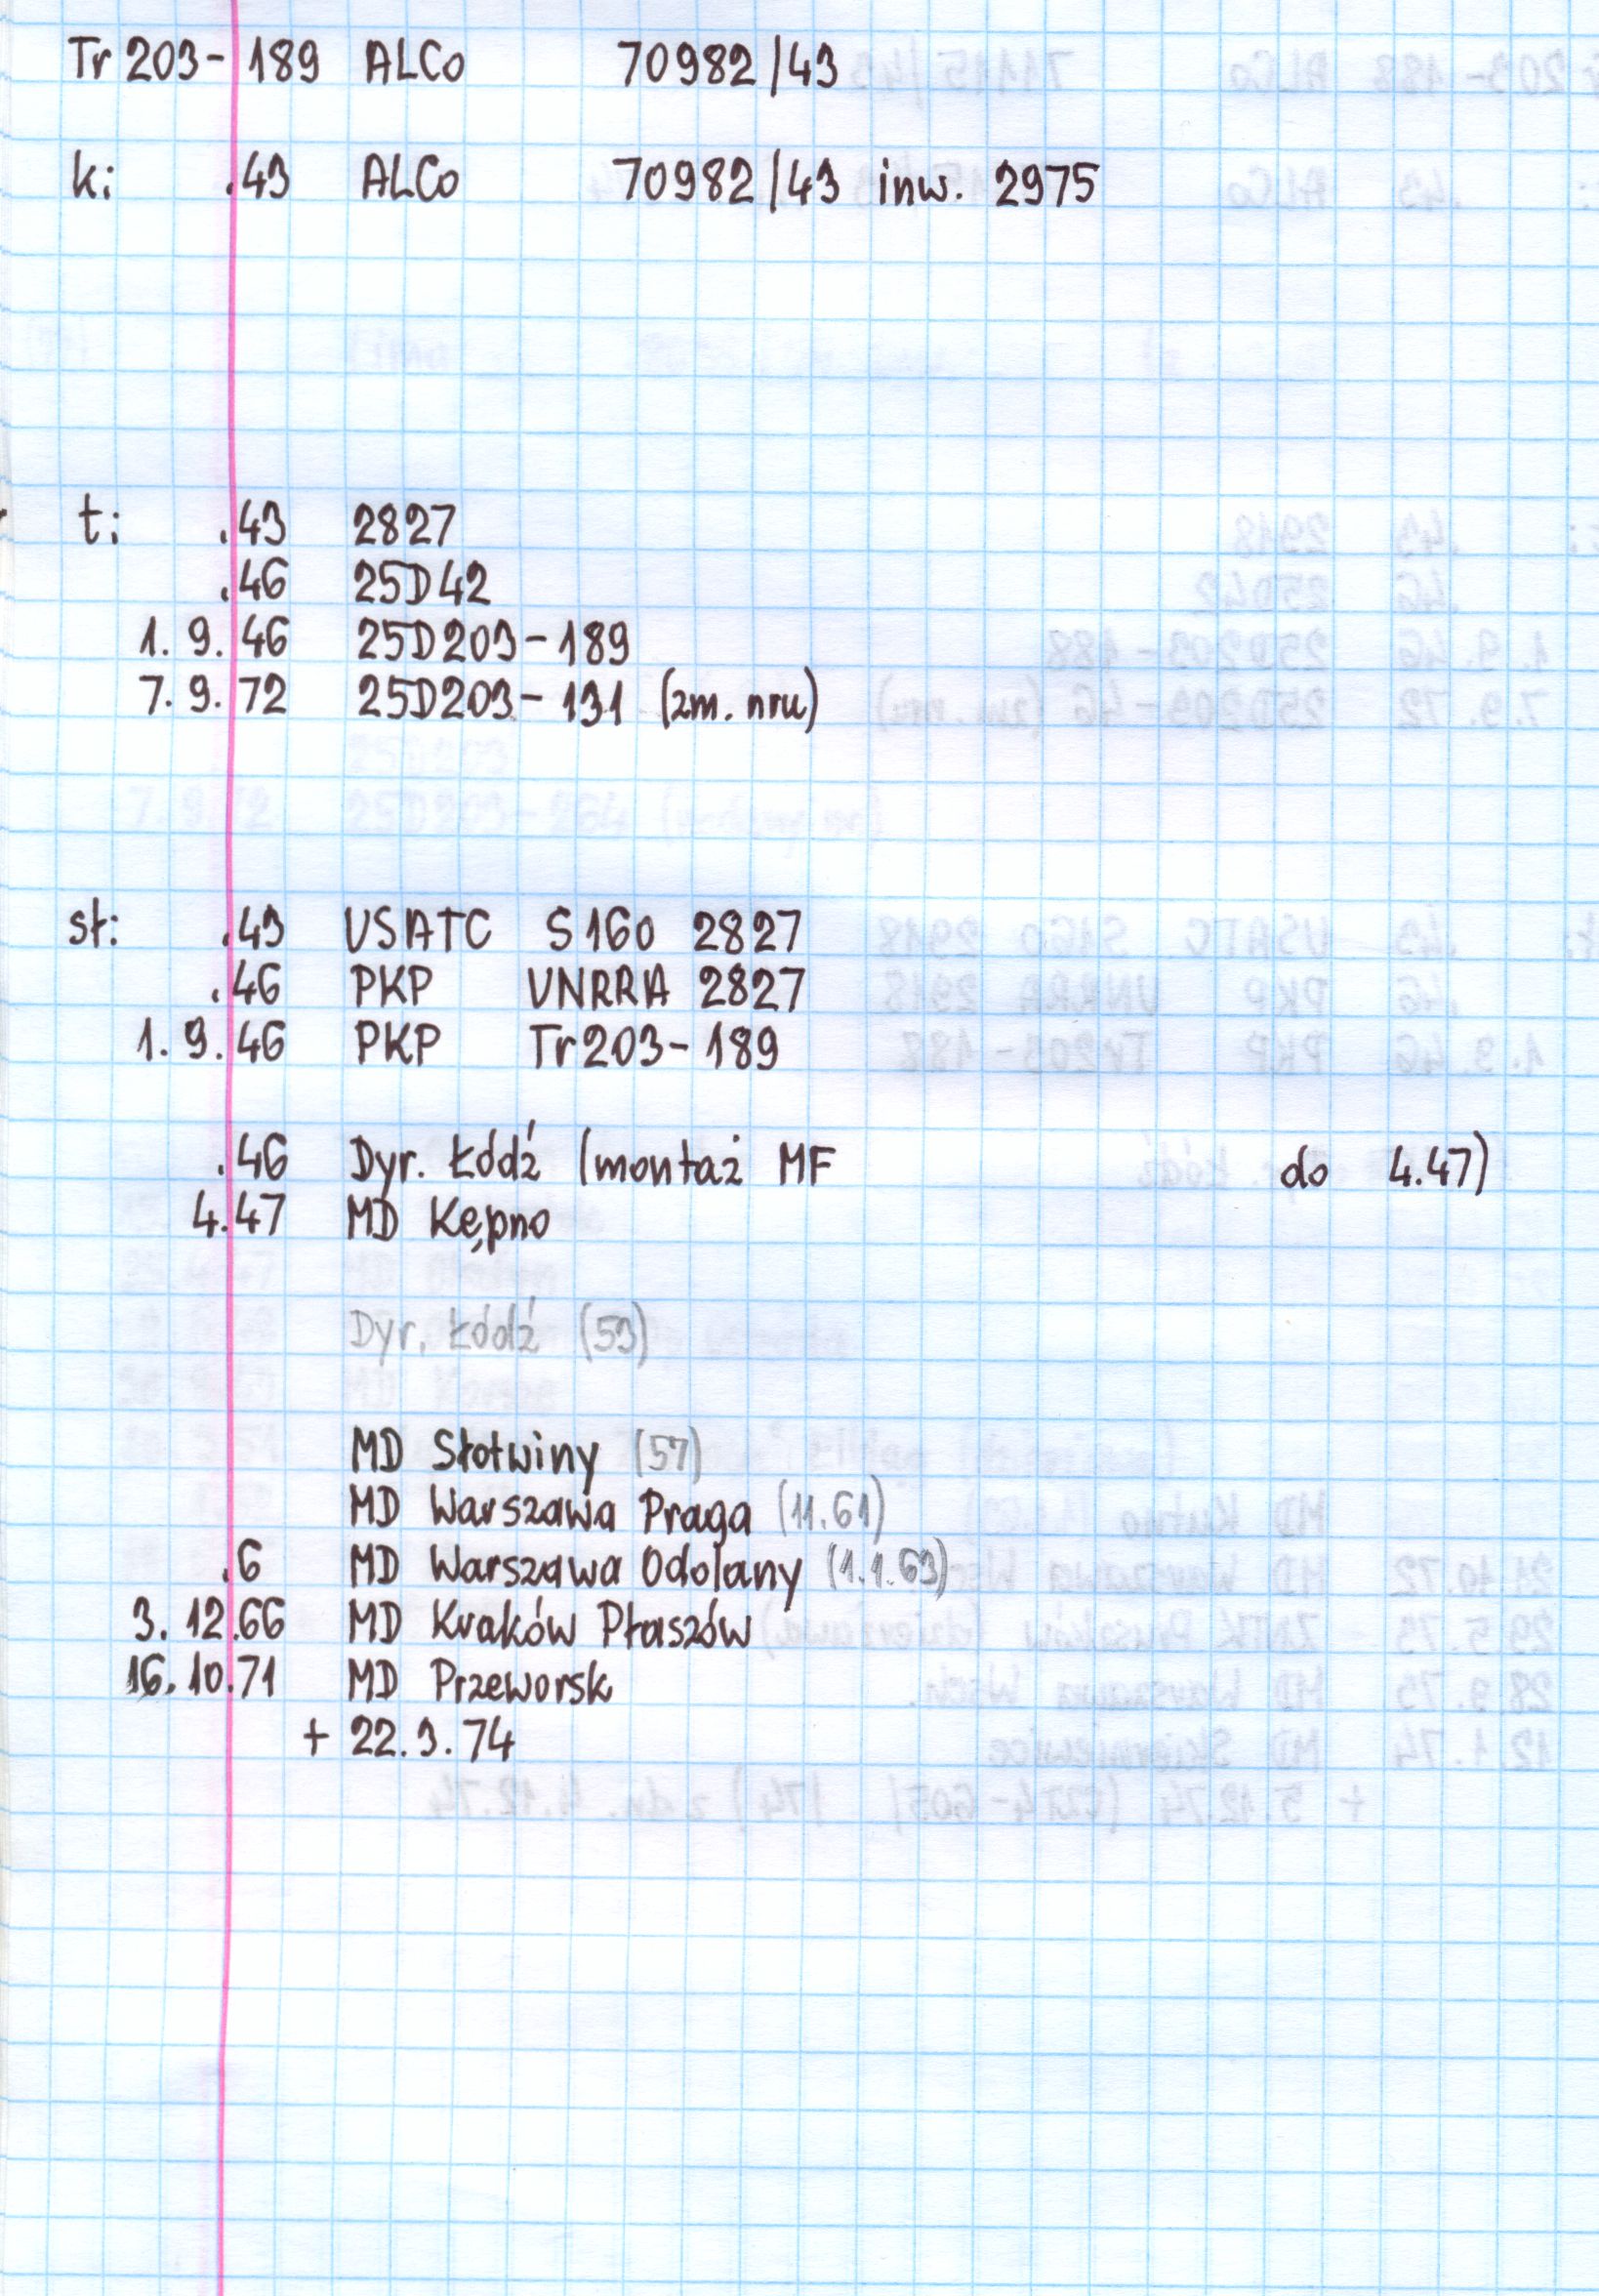 Tr 203-189 ALCo 70982/43
k: .43 ALCo 70982/43 inw. 2975
t: .43 2827
.46 25D42
1. 9. 46 25D203-189
7. 9. 72 25D203-131 (zm. nru)
sł: .43 USATC S160 2827
.46 PKP UNRRA 2827
1. 9. 46 PKP Tr203-189
.46 Dyr. Łódź (montaż MF do 4.47)
4.47 MD Kępno
Dyr. Łódź (53)
MD Słotwiny (57)
MD Warszawa Praga (11.61)
.6 MD Warszawa Odolany (1.1.63)
3. 12.66 MD Kraków Płaszów
16. 10.71 MD Przeworsk
+ 22.3.74